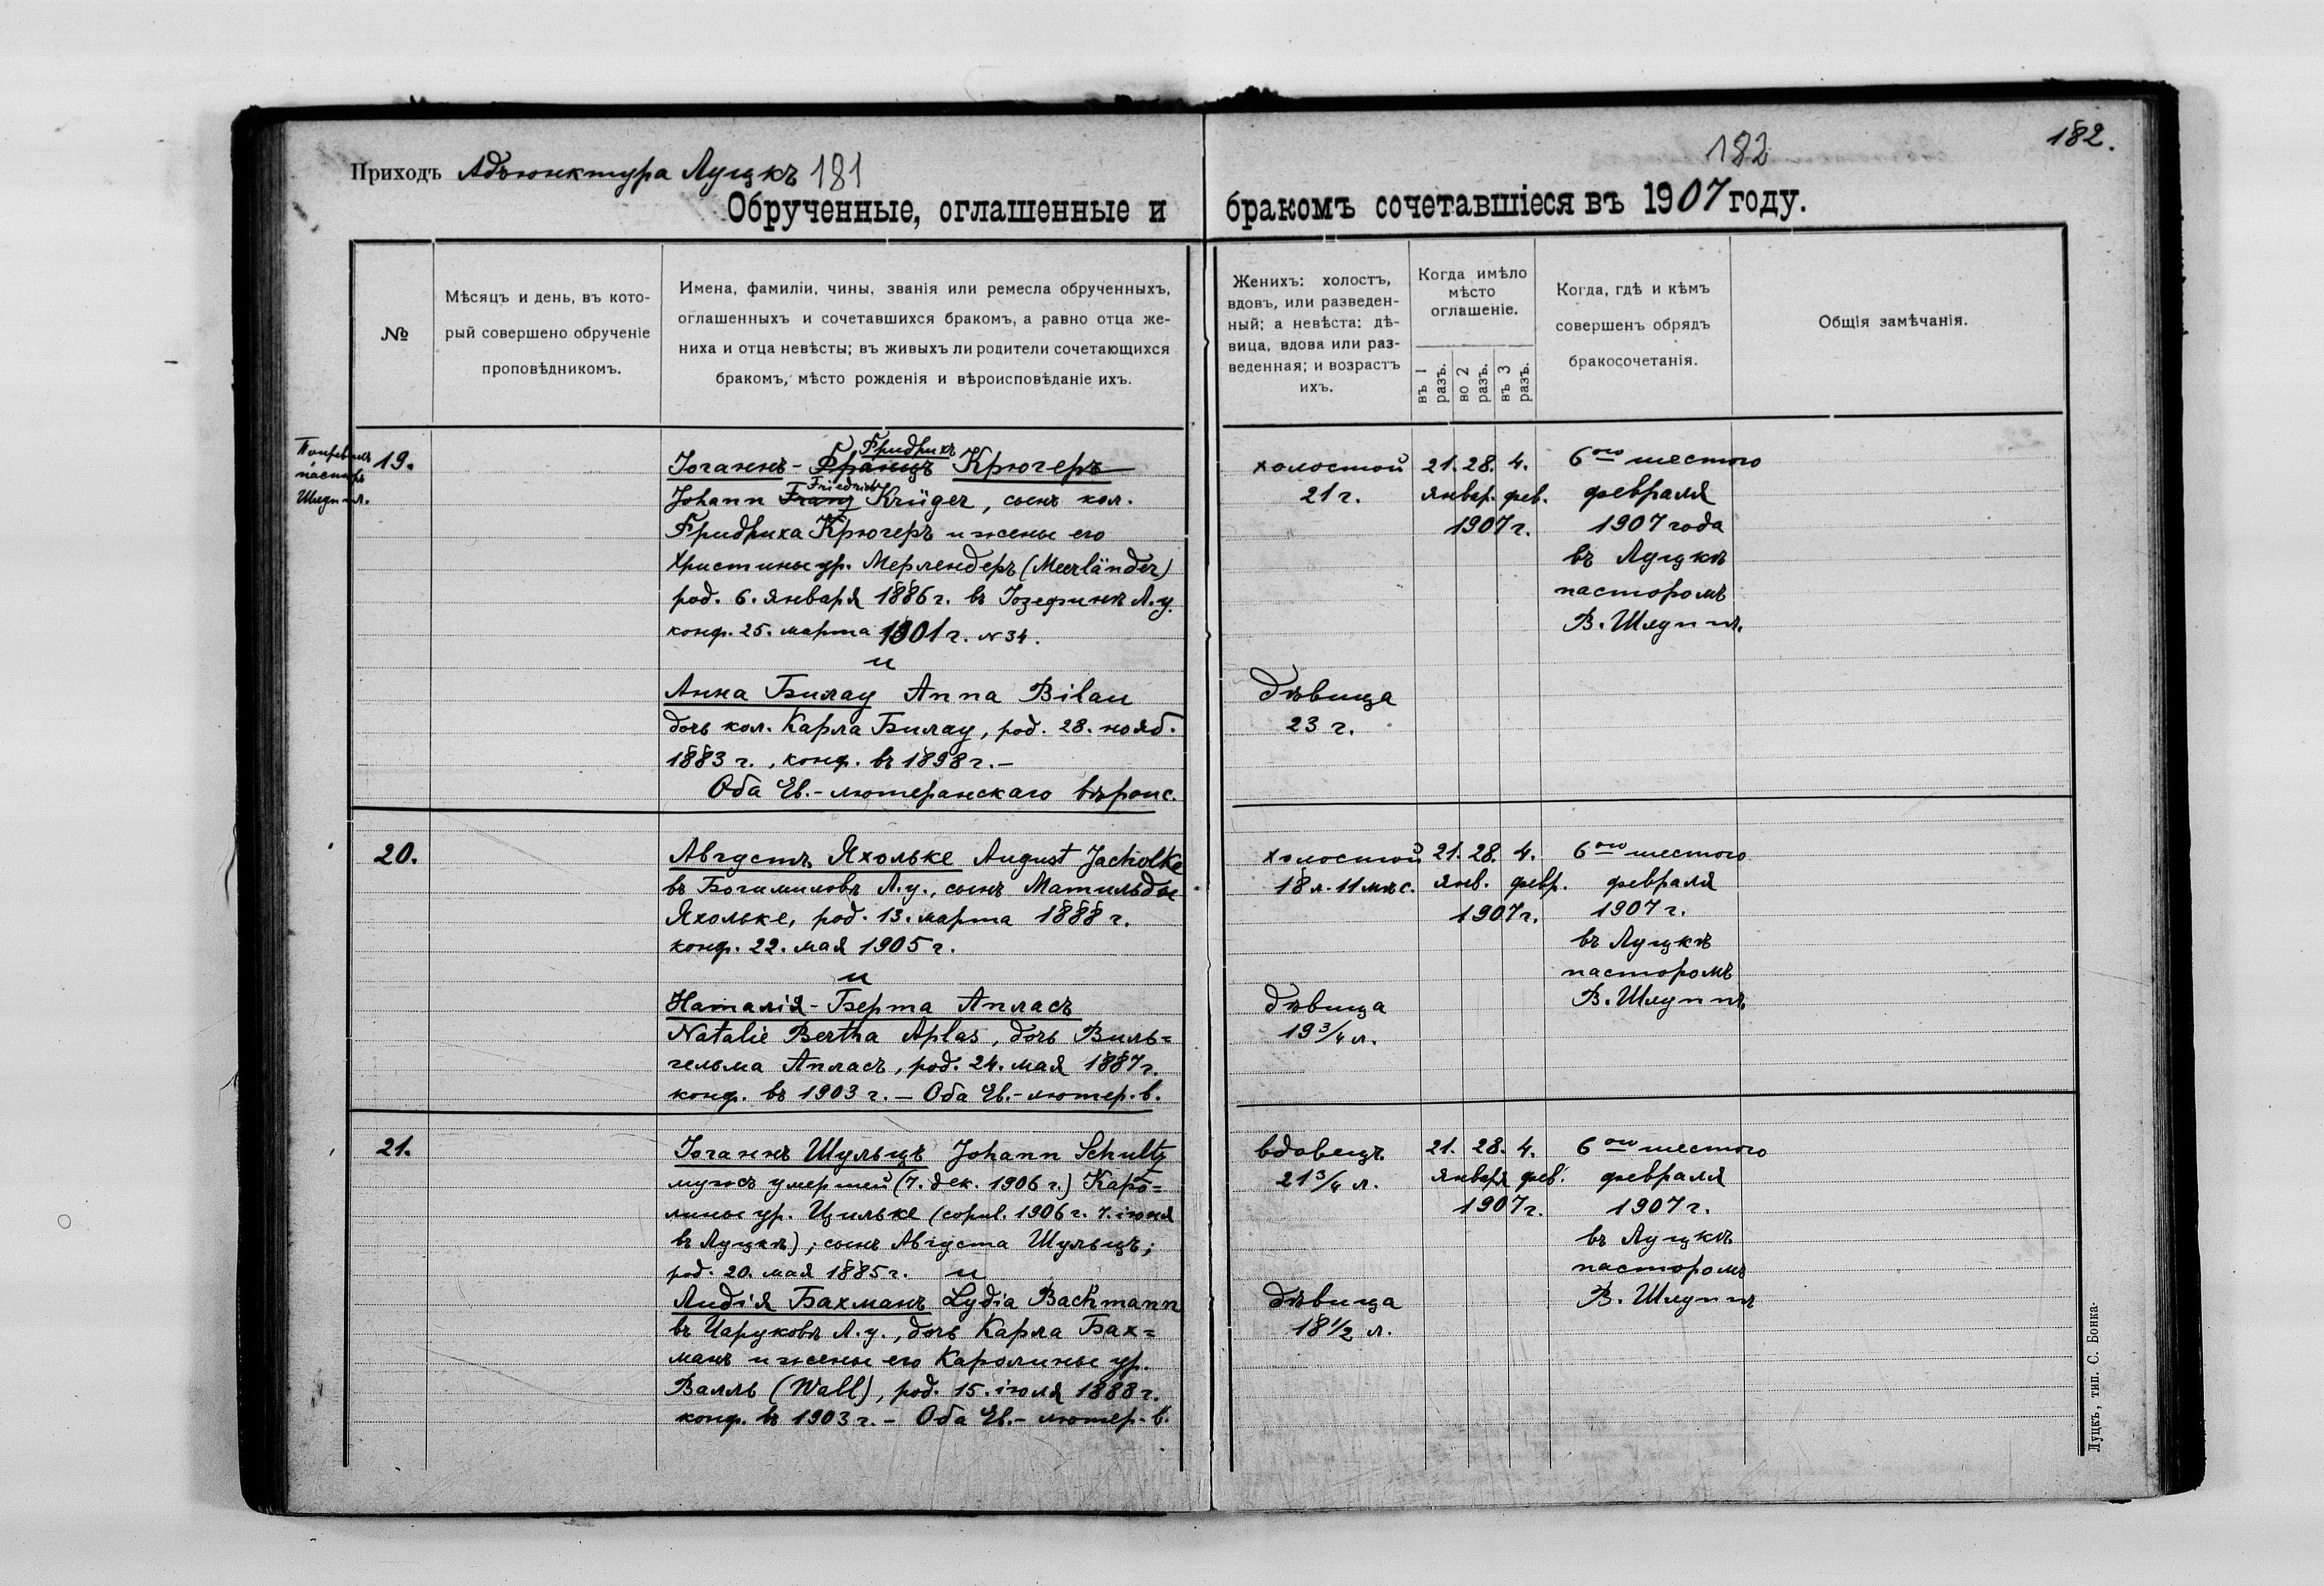 Приходъ Адъюнктура Луцкъ 181
182
182.
Обрученные, оглашенные и бракомъ сочетавшіеся въ 1907 году.
№
Мѣсяцъ и день, въ кото-
рый совершено обрученіе
проповѣдникомъ.
Имена, фамиліи, чины, званія или ремесла обрученныхъ,
оглашенныхъ и сочетавшихся бракомъ, а равно отца же-
ниха и отца невѣсты; въ живыхъ ли родители сочетающихся
бракомъ, мѣсто рожденія и вѣроисповѣданіе ихъ.
Женихъ: холостъ,
вдовъ, или разведен-
ный; а невѣста: дѣ-
вица, вдова или раз-
веденная; и возрастъ
ихъ.
Когда имѣло
мѣсто
оглашеніе.
въ 1 разъ.
во 2 разъ.
въ 3 разъ.
Когда, гдѣ и кѣмъ
совершенъ обрядъ
бракосочетанія.
Общія замѣчанія.
пасторъ
Шлуппъ.
19.
Фридрихъ
Іоганнъ-Францъ Крюгеръ
Friedrich
Johann Franz Krüger, сынъ кол.
Фридриха Крюгеръ и жены его
Христины ур. Мерлендеръ (Meerländer)
род. 6. января 1886 г. въ Іозефинѣ Л.у.
конф. 25. марта 1901 г. N 34.
и
Анна Билау Anna Bilau
дочь кол. Карла Билау, род. 28. нояб.
1883 г., конф. въ 1898 г.-
Оба Ев.-лютеранскаго вѣроис.
холостой
21 г.
дѣвица
23 г.
21. 28. 4.
январ. фев.
1907 г.
6ого шестого
февраля
1907 года
въ Луцкѣ
пасторомъ
В. Шлуппъ.
20.
Августъ Яхольке August Jacholke
въ Богимиловѣ Л.у., сынъ Матильды
Яхольке, род. 13. марта 1888 г.
конф. 22. мая 1905 г.
и
Наталія-Берта Апласъ
Natalie Bertha Aplas, дочь Виль=
гельма Апласъ, род. 24. мая 1887 г.
конф. въ 1903 г. - Оба Ев.-лютер. в.
холостой
18 л. 11 мѣс.
дѣвица
19 3/4 л.
21. 28. 4.
янв. февр.
1907 г.
6ого шестого
февраля
1907 г.
въ Луцкѣ
пасторомъ
В. Шлуппъ
21.
Іоганнъ Шульцъ Johann Schultz
мужъ умершей (7. дек. 1906 г.) Каро=
лины ур. Цильке (copul. 1906 г. 7. іюня
въ Луцкѣ); сынъ Августа Шульцъ;
род. 20. мая 1885 г. и
Лидія Бахманъ Lydia Bachmann
въ Чаруковѣ Л.у., дочь Карла Бах=
манъ и жены его Каролины ур.
Валль (Wall), род. 15. іюля 1888 г.
конф. въ 1903 г. - Оба Ев.-лютер. в.
вдовецъ
21 3/4 л.
дѣвица
18 1/2 л.
21. 28. 4.
января фев.
1907 г.
6ого шестого
февраля
1907 г.
въ Луцкѣ
пасторомъ
В. Шлуппъ
Луцкъ, тип. С. Бонка.